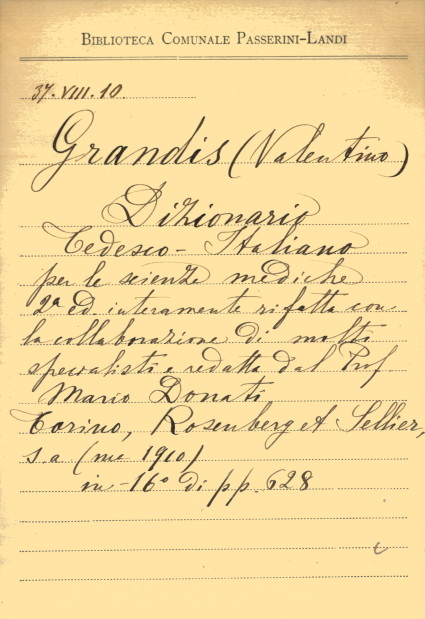 BIBLIOTECA COMUNALE PASSERINI-LANDI
37.VIII.10.
Grandis (Valentino)
Dizionario
Tedesco-Italiano
per le scienze mediche
2ª ed. interamente rifatta con
la collaborazione di molti
specialisti e redatta dal Prof
Mario Donati
Torino, Rosenberg et Sellier,
s.a (ma 1910)
in-16° di pp. 628